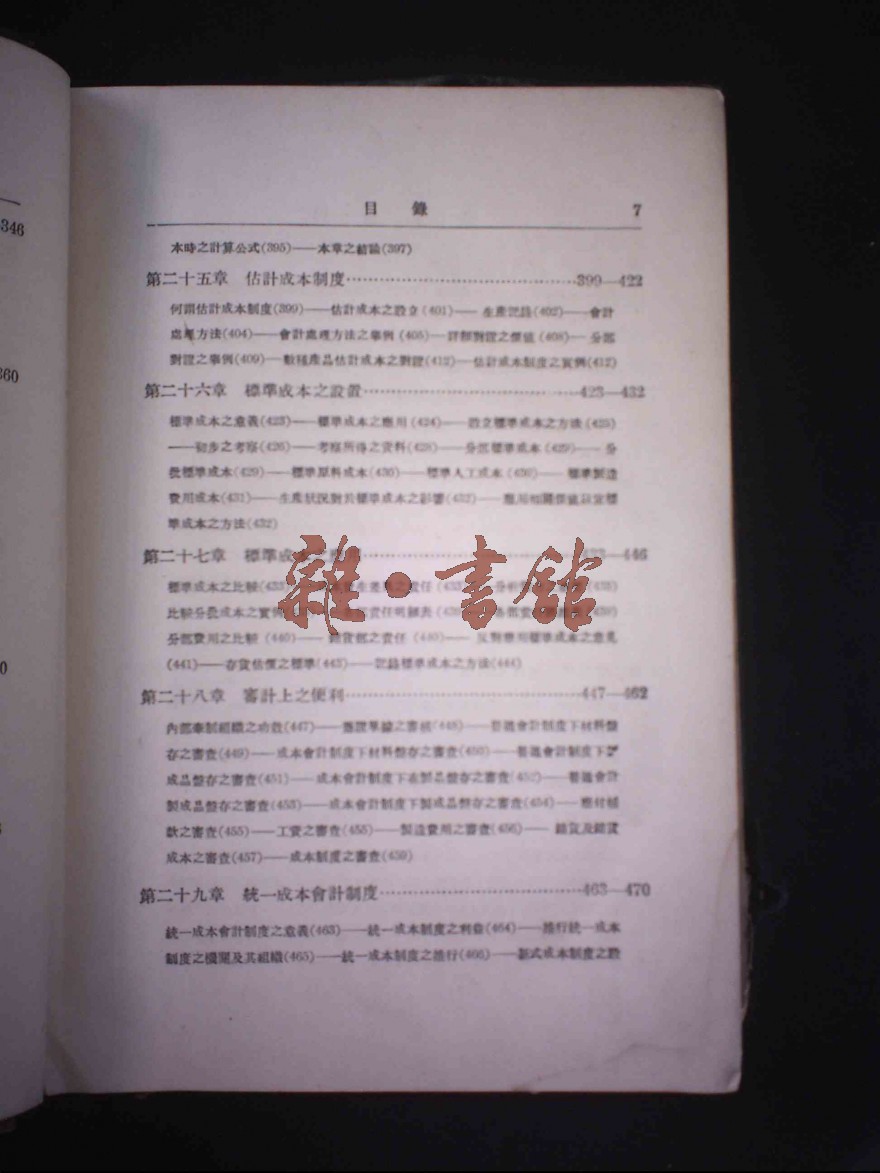 目 錄 7
本時之計算公式(395)——本章之結論(397)
第二十五章 估計成本制度……399—422
何謂估計成本制度(399)——估計成本之設立(401)——生產記錄(402)——會計
處理方法(404)——會計處理方法之舉例(405)——詳細對證之價値(408)——分部
對證之舉例(409)——數種產品估計成本之對證(412)——估計成本制度之實例(412)
第二十六章 標準成本之設置……423—432
標準成本之意義(423)——標準成本之應用(424)——設立標準成本之方法(425)
——初步之考察(426)——考察所得之資料(428)——分部標準成本(429)——分
批標準成本(429)——標準原料成本(430)——標準人工成本(430)——標準製造
費用成本(431)——生產狀況對於標準成本之影響(432)——應用相關價値以定標
準成本之方法(432)
第二十七章 標準成本 446
標準成本之比較 責任
比較分批成本之實例 責任明細表
分部費用之比較(440)——銷貨部之責任(440)——反對應用標準成本之意見
(441)——存貨估價之標準(443)——記錄標準成本之方法(444)
第二十八章 審計上之便利……447—462
內部牽制組織之功效(447)——應證單據之審核(448)——普通會計制度下材料盤
存之審查(449)——成本會計制度下材料盤存之審查(450)——普通會計制度下
成品盤存之審查(451)——成本會計制度下在製品盤存之審查(452)——普通會計
製成品盤存之審查(453)——成本會計制度下製成品盤存之審查(454)——應付帳
款之審查(455)——工資之審查(455)——製造費用之審查(456)——銷貨及銷貨
成本之審查(457)——成本制度之審查(459)
第二十九章 統一成本會計制度……463—470
統一成本會計制度之意義(463)——統一成本制度之利益(464)——推行統一成本
制度之機關及其組織(465)——統一成本制度之推行(466)——新式成本制度之設
雜·書館
346
360
0